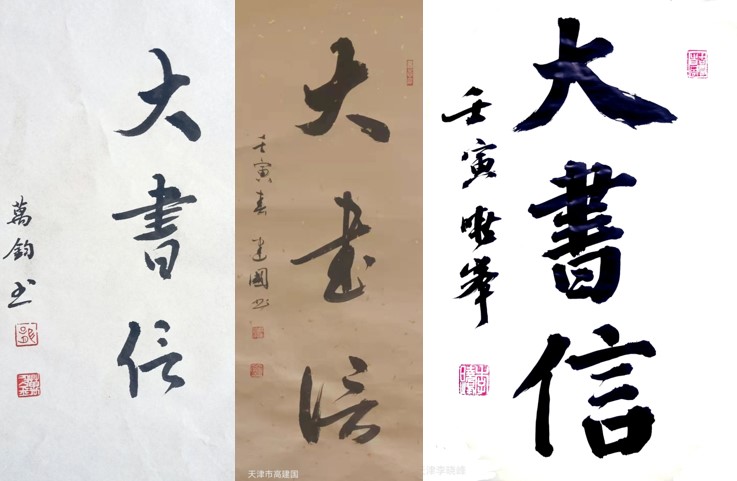 大書信
萬鈞书
大書信
壬寅春建國书
天津市高建国
大書信
壬寅曉峰
津李晓峰